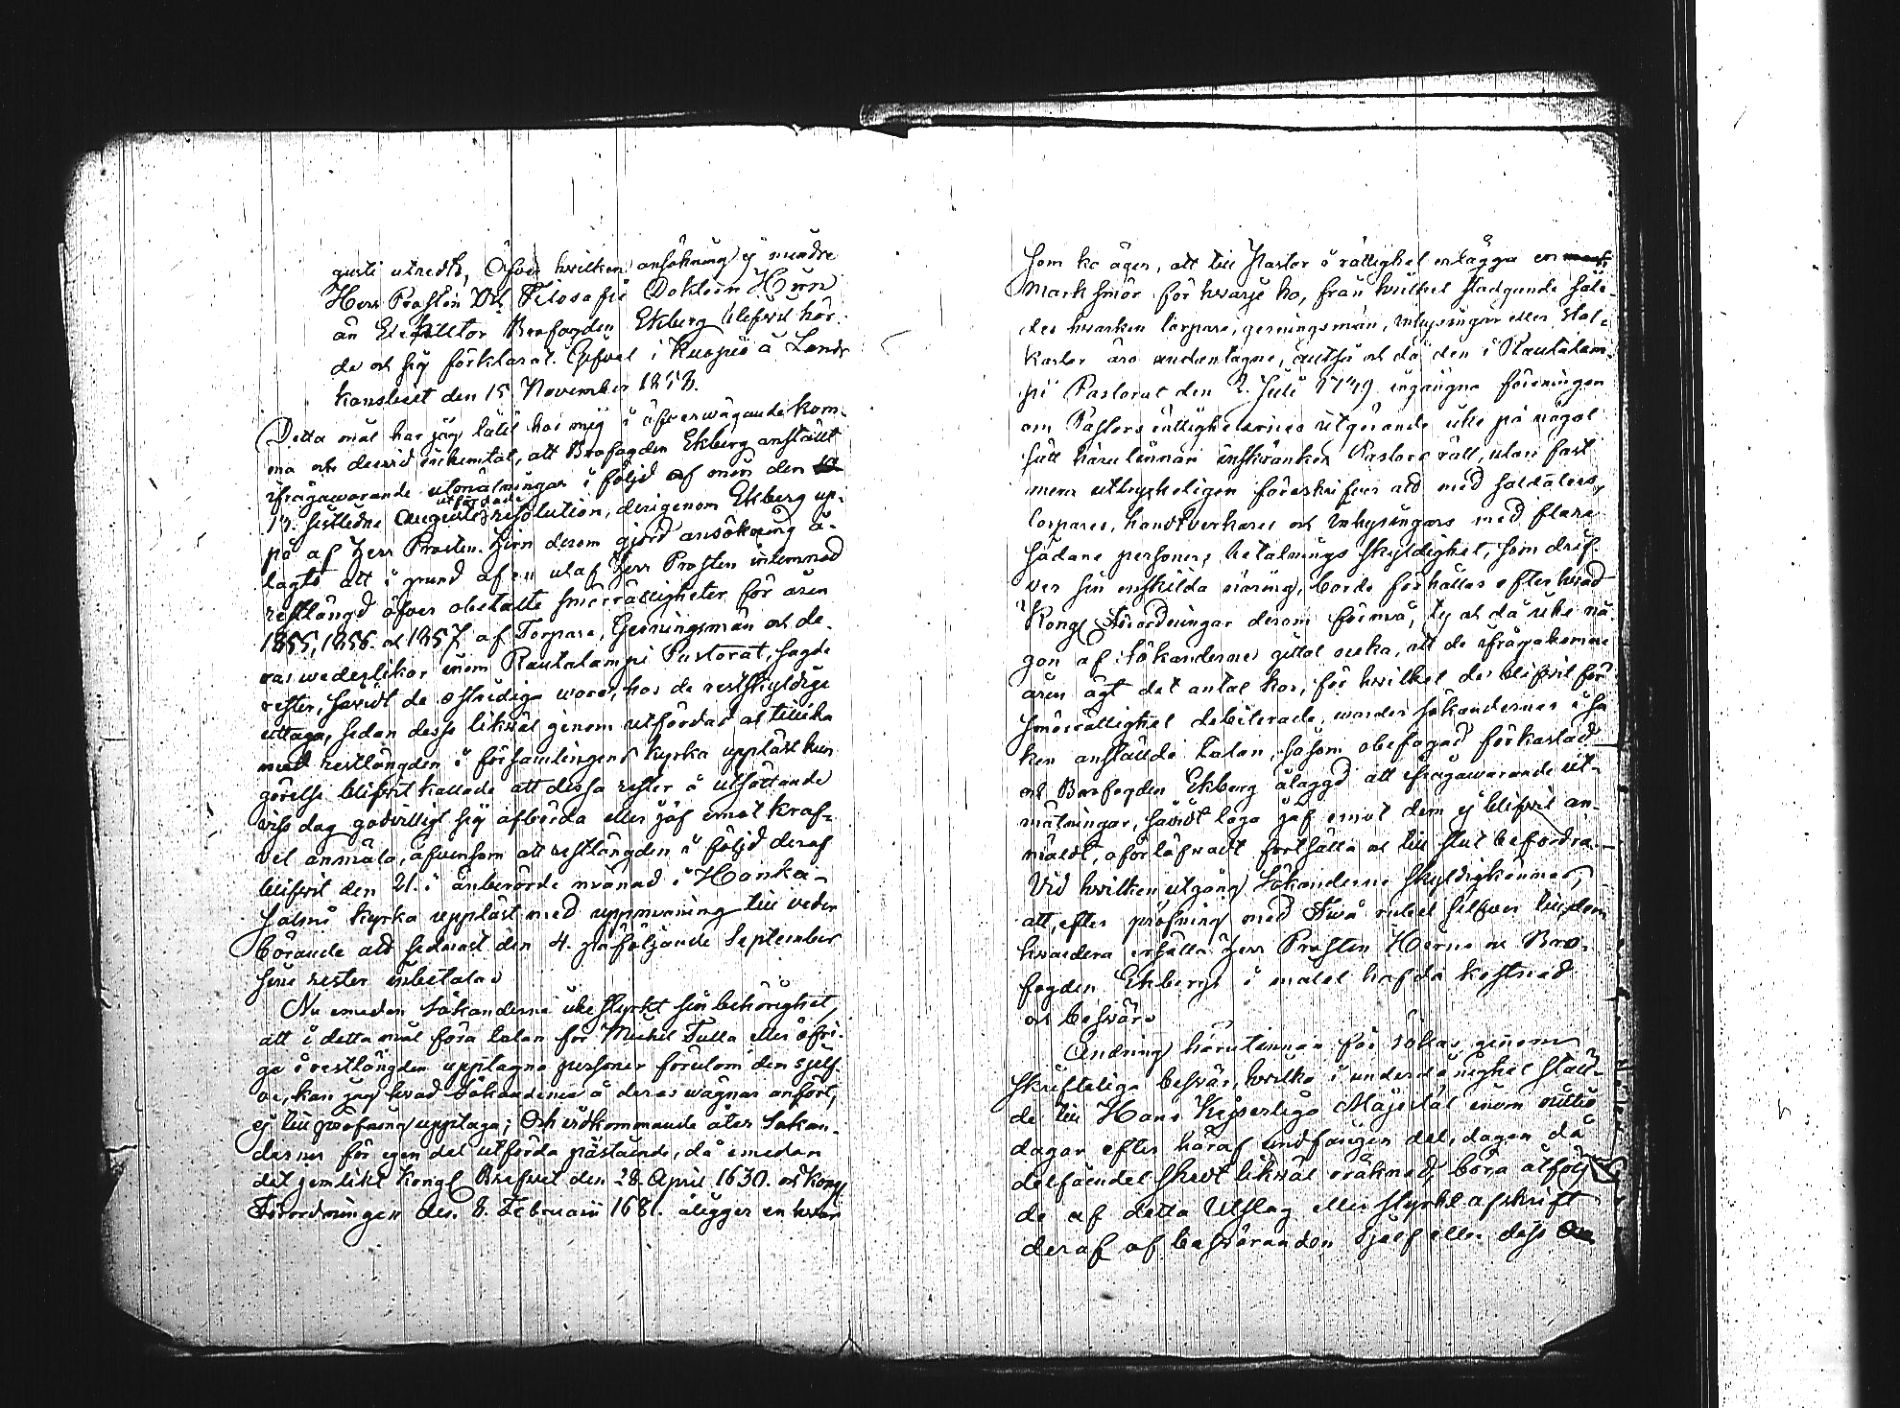 gusti utredts, Öfver hvilken ansökning ej mindre
Herr Prosten och Filosofie Doktorn Hirn
än Exekutor Brofogden Ekberg blifvit hör-
de och sig förklarat. Gifvet i Kuopio å Lands
kansliet den 15 November 1858.
Detta mål har jag låtit hos mig i öfvervägande kom-
ma och dervid inhemtat, att Brofogden Ekberg anställt
ifrågavarande utmätningar i följd af min den
17. sistledne Augusti utfärdade resolution, derigenom Ekberg up-
på af Herr Prosten Hirn derom gjord ansökning å-
lagts att i grund af en utaf Herr Prosten inlemnad
restlängd öfver obetalte smörrättigheter för åren
1855, 1856 och 1857 af Torpare, Gerningsmän och de-
ras vederlikar inom Rautalampi Pastorat, sagde
rester, såvidt de ostridiga voro, hos de restskyldige
uttaga, sedan desse likväl genom utfärdad och tillika
med restlängden i församlingens kyrka uppläst kun
görelse blifvit kallade att dessa rester å utsättande
viss dag godvilligt sig afbörda eller jäf emot kraf-
vet anmäla, äfvensom att restlängden i följd deraf
blifvit den 21. i änberörde månad i Hanka-
salmi kyrka uppläst med uppmaning till veder
börande att sednast den 4. påföljande September
sine rester inbetala.
Nu emedan Sökanderne icke styrkt sin behörighet,
att i detta mål föra talan för Michel Tulla eller öfri-
ga i restlängden upptagne personer förutom dem sjelf-
ve, kan jag hvad Sökanderne å deras vägnar anfört,
ej till pröfning upptaga; Och vidkommande åter Sökan-
dernes för egen del utförda påstående, då emedan
det jemlikt Kongl Brefvet den 28. April 1630. och Kongl
Förordningen den 8. Februarii 1681. åligger en hvar
som ko äger, att till Pastor i rättighet erlägga en
mark smör för hvarje ko, från hvilket stadgande såle-
des hvarken torpare, gerningsmän, inhysingar eller Stat-
karlar äro undantagne, änsså och då den i Rautalam-
pi Pastorat den 2. Juli 1749 ingångne föreningen
om Pastors rättigheternes utgörande icke på något
sätt härutinnan inskränker Pastors rätt, utan fast
mera uttryckeligen föreskrifver att med soldaters,
torpares, handtverkares och inhysingars med flere
sådane personers betalnings skyldighet, som drif-
ver sin enskilda näring, borde förhållas efter hvad
Kongl Förordningar derom förmå, ty och då icke nå-
gon af Sökanderne gittat neka, att de ifrågakomne
åren ägt det antal kor, för hvilket de blifvit för
smörrättighet debiterade, warder sökandernes i sa
ken anställde talan, såsom obefogad förkastad
och Brofogden Ekberg ålaggd att ifrågavarande ut-
mätningar, såvidt laga jäf emot dem ej blifvit an-
mäldt, oförtöfvadt fortsätta och till slut befordra.
Vid hvilken utgång Sökanderne skyldigkännes,
att, efter pröfning med Två rubel silfver till dem
hvardera ersätta Herr Prosten Hirns och Bro-
fogden Ekbergs i målet hafda kostnad
och besvär.
Ändring härutinnan får sökas genom
skrifteliga besvär, hvilka i underdånighet ställ-
de till Hans Kejserliga Majestät inom nittio
dagar efter häraf undfången del, dagen då
delfåendet skedt likväl oräknad, böra åtfölj
de af detta Utslag eller styrkt afskrift
deraf af besväranden sjelf eller dess